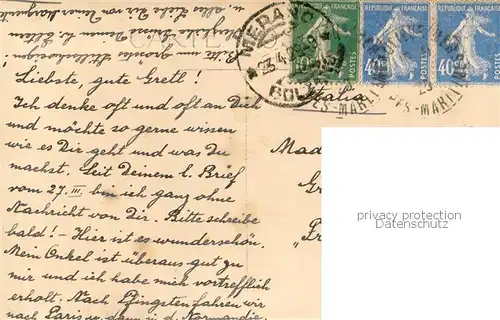 u. alles Liebe Dir von Deiner
Bitte
Liebste, gute Gretl!
Ich denke oft und oft an Dich
und möchte so gerne wissen
wie es Dir geht und was Du
machst. Seit Deinem l. Brief
vom 27. III. bin ich ganz ohne
Nachricht von Dir. Bitte schreibe
bald! – Hier ist es wunderschön.
Mein Onkel ist überaus gut zu
mir und ich habe mich vortrefflich
erholt. Nach Pfingsten fahren wir
nach Paris u. dann i. d. Normandie.
MERANO
23.4.
BOLZANO
REPUBLIQUE FRANÇAISE
10 POSTES
REPUBLIQUE FRANÇAISE
40 POSTES
REPUBLIQUE FRANÇAISE
40 POSTES
PES-MARITIMES
PES-MARITIMES
Italia
Mad
Gr
privacy protection
Datenschutz